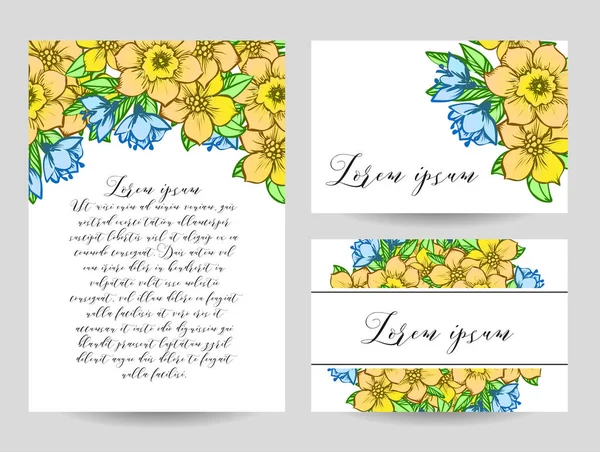 Lorem ipsum
Ut wisi enim ad minim
veniam, quis nostrud
exerci tation ullamcorper
suscipit lobortis nisl ut aliquip ex ea
commodo consequat. Duis
autem vel eum iriure
dolor in hendrerit in
vulputate velit esse
molestie
consequat, vel illum
dolore eu feugiat nulla
facilisis at vero eros et
accumsan et
iusto odio dignissim qui
blandit praesent luptatum zzril
delenit augue duis dolore te feugait
nulla facilisi.
Lorem ipsum
Lorem ipsum